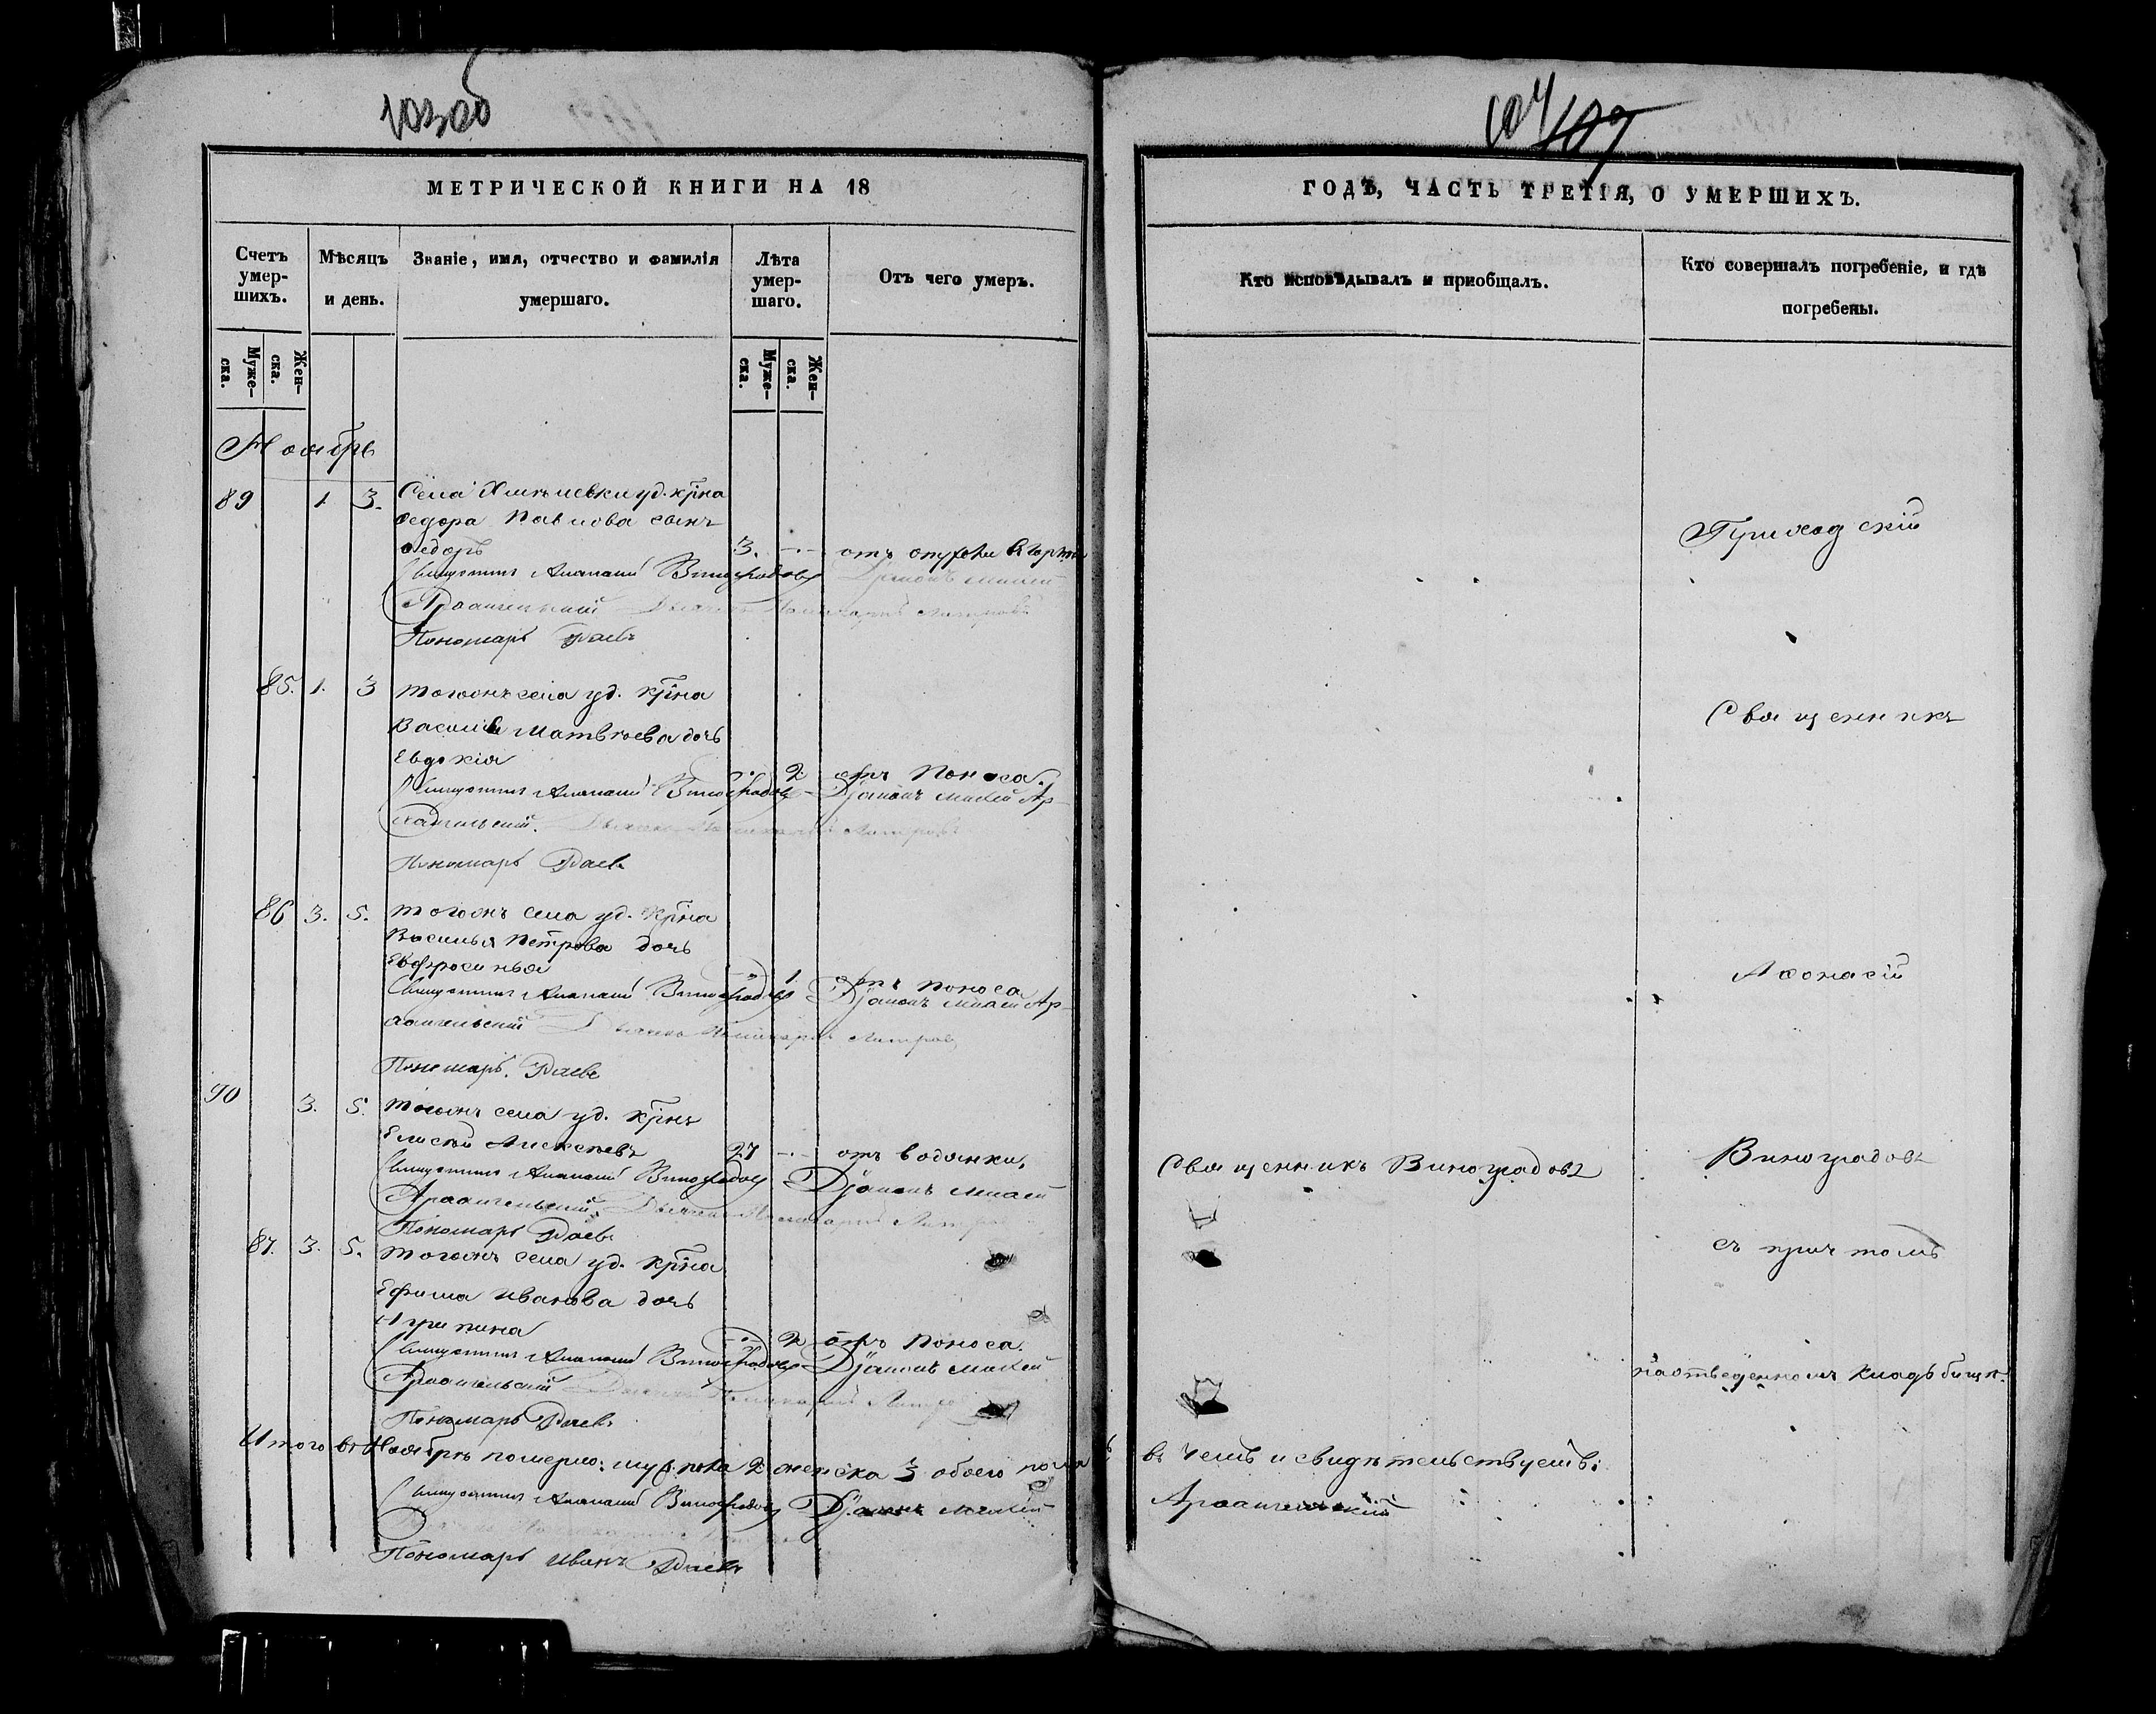 103об
104 109
МЕТРИЧЕСКОЙ КНИГИ НА 18
ГОДЪ, ЧАСТЬ ТРЕТІЯ, О УМЕРШИХЪ.
Счетъ умер-шихъ.
Мѣсяцъ и день.
Званіе, имя, отчество и фамилія умершаго.
Лѣта умер-шаго.
Отъ чего умеръ.
Кто исповѣдывалъ и приобщалъ.
Кто совершалъ погребеніе, и гдѣ погребены.
Муже-ска.
Жен-ска.
Муже-ска.
Жен-ска.
Ноябрь
89 1. 3. Села уд. крⷭ҇на
Федора Павлова сынъ
Федоръ 3. -.- отъ
Священникъ Виноградовъ
Архангельскій
Пономарь Раевъ
85. 1. 3 тогожъ села уд. крⷭ҇на
Василія Матвѣева дочь
Евдокія -.- 2 отъ поноса.
Священникъ Виноградовъ Дiаконъ Ар-
хангельскій.
Пономарь Раевъ
86 3. 5. тогожъ села уд. крⷭ҇на
Василья Петрова дочь
Евфросинья -.- 1. отъ поноса
Священникъ Виноградовъ Дiаконъ Ар-
хангельскій
Пономарь. Раевъ
90 3. 5. тогожъ села уд. крⷭ҇нъ
Елисей Алексѣевъ 27 -.- отъ водянки,
Священникъ Виноградовъ Дiаконъ
Архангельскій.
Пономарь Раевъ
87. 3. 5. тогожъ села уд. крⷭ҇на
Ефима Иванова дочь
Агрипина -.- 2 отъ поноса.
Священникъ Виноградовъ Дiаконъ
Архангельскій
Пономарь Раевъ
Итого въ Ноябрѣ померло: муж. пола 2 женска 3 обоего пола
Священникъ Виноградовъ Дiаконъ
Пономарь Иванъ Раевъ
Священникъ Виноградовъ
въ чемъ и свидѣтельствуемъ:
Архангельскій
Приходскій
Священникъ
Афонасій
Виноградовъ
съ причтомъ
на отведенномъ кладьбищѣ.